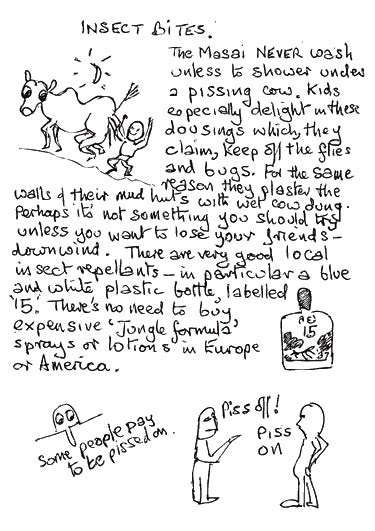 INSECT BITES.
The Masai NEVER wash
unless to shower under
a pissing cow. Kids
especially delight in these
dousings which, they
claim, keep off the flies
and bugs. For the same
reason they plaster the
walls of their mud huts with wet cow dung.
Perhaps it's not something you should try
unless you want to lose your friends –
downwind. There are very good local
insect repellants – in particular a blue
and white plastic bottle, labelled
'15'. There's no need to buy
expensive 'Jungle formula'
sprays or lotions in Europe
or America.
15
some people pay
to be pissed on.
Piss off!
PISS
ON